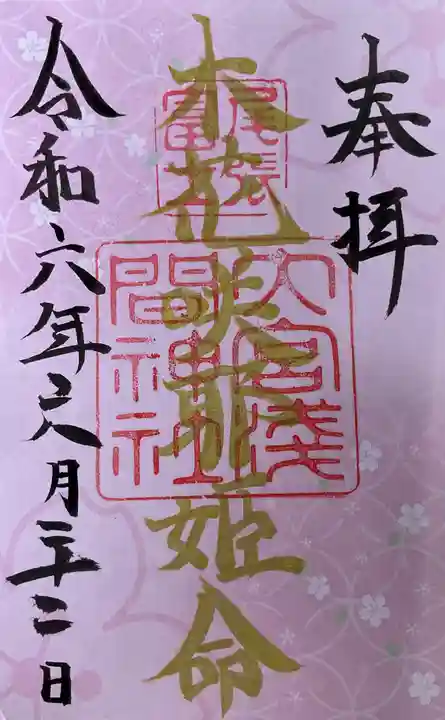 奉拝
木花咲耶姫命
尾張
富士
大宮浅
間神社
令和六年月二十二日